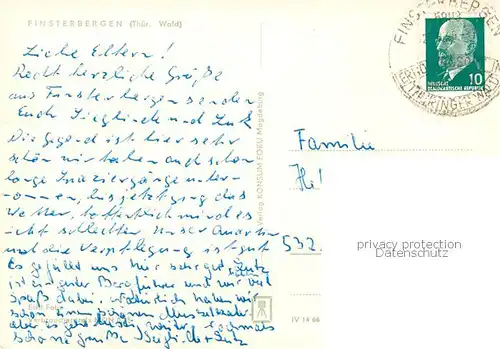 FINSTERBERGEN (Thür. Wald)
Liebe Eltern!
Recht herzliche Grüße
aus Finsterbergen senden
Euch Sieglinde und Lutz
Die Gegend ist hier sehr
schön wir haben auch schon
lange Spaziergänge unter-
nommen, bis jetzt ging das
Wetter, hoffentlich wird es
nicht schlechter unser Quartier
und die Verpflegung ist gut
Es gefällt uns hier sehr gut Lutz
ist ein guter Bergführer und wir viel
Spaß dabei, haben wir
schon einen Muskelkater
aber es geht weiter nochmals
schöne Grüße Lutz
Verlag KONSUM FOKU Magdeburg
IV 14 66
FINSTERBERGEN
THÜRINGER WALD
10
DEUTSCHE
DEMOKRATISCHE REPUBLIK
Familie
He!
532
privacy protection
Datenschutz